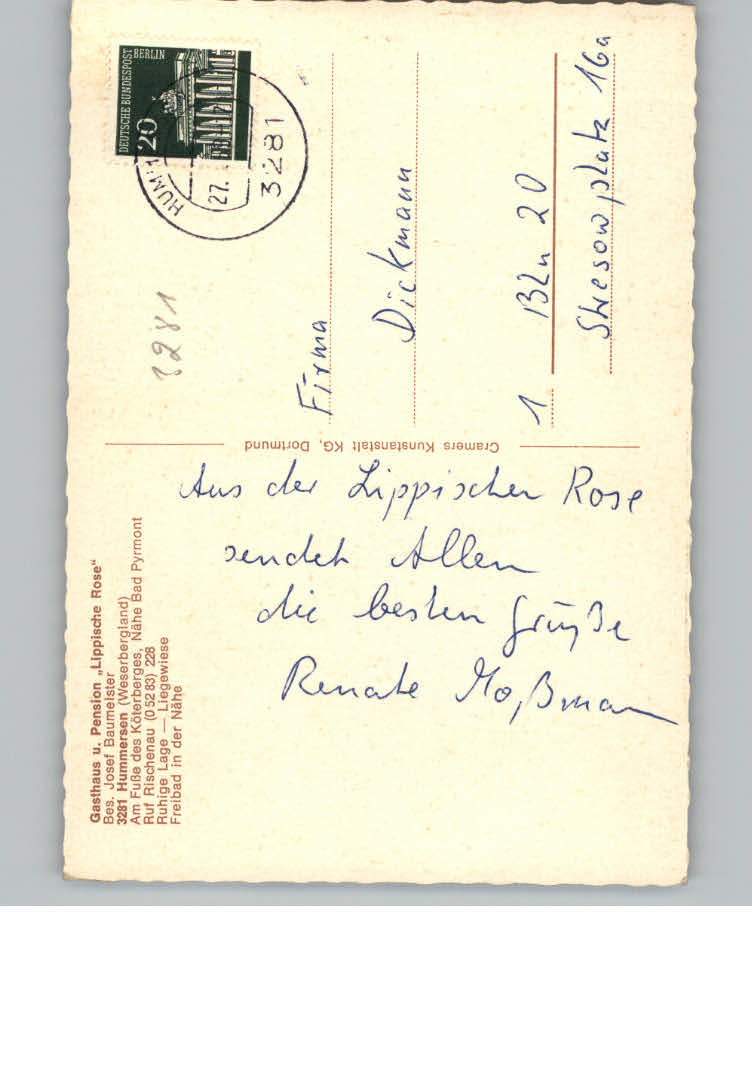 Gasthaus u. Pension „Lippische Rose“
Bes. Josef Baumeister
3281 Hummersen (Weserbergland)
Am Fuße des Köterberges, Nähe Bad Pyrmont
Ruf Rischenau (0 52 83) 228
Ruhige Lage — Liegewiese
Freibad in der Nähe
Aus der Lippischen Rose
sendet Allen
die besten Grüße
Renate Moßmann
Cramers Kunstanstalt KG, Dortmund
DEUTSCHE BUNDESPOST BERLIN
20
27.
3281
3281
Firma
Dickmann
1 Bln 20
Stresowplatz 16a